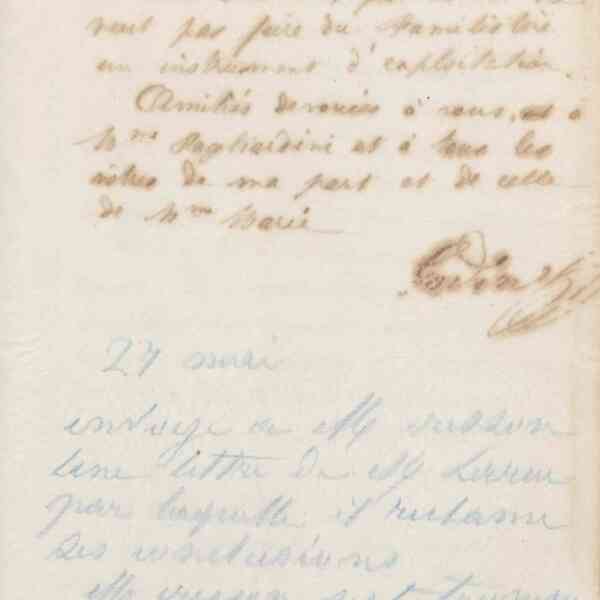 veut pas faire du Familistère
un instrument d'exploitation.
Amitiés dévouées à vous, et à
Mme Pagliardini et à tous les
vôtres de ma part et de celle
de Mme Marie
Godin
27 mai
envoye a M
une lettre de M Leroux
par laquelle il reclame
ses conclusions
M